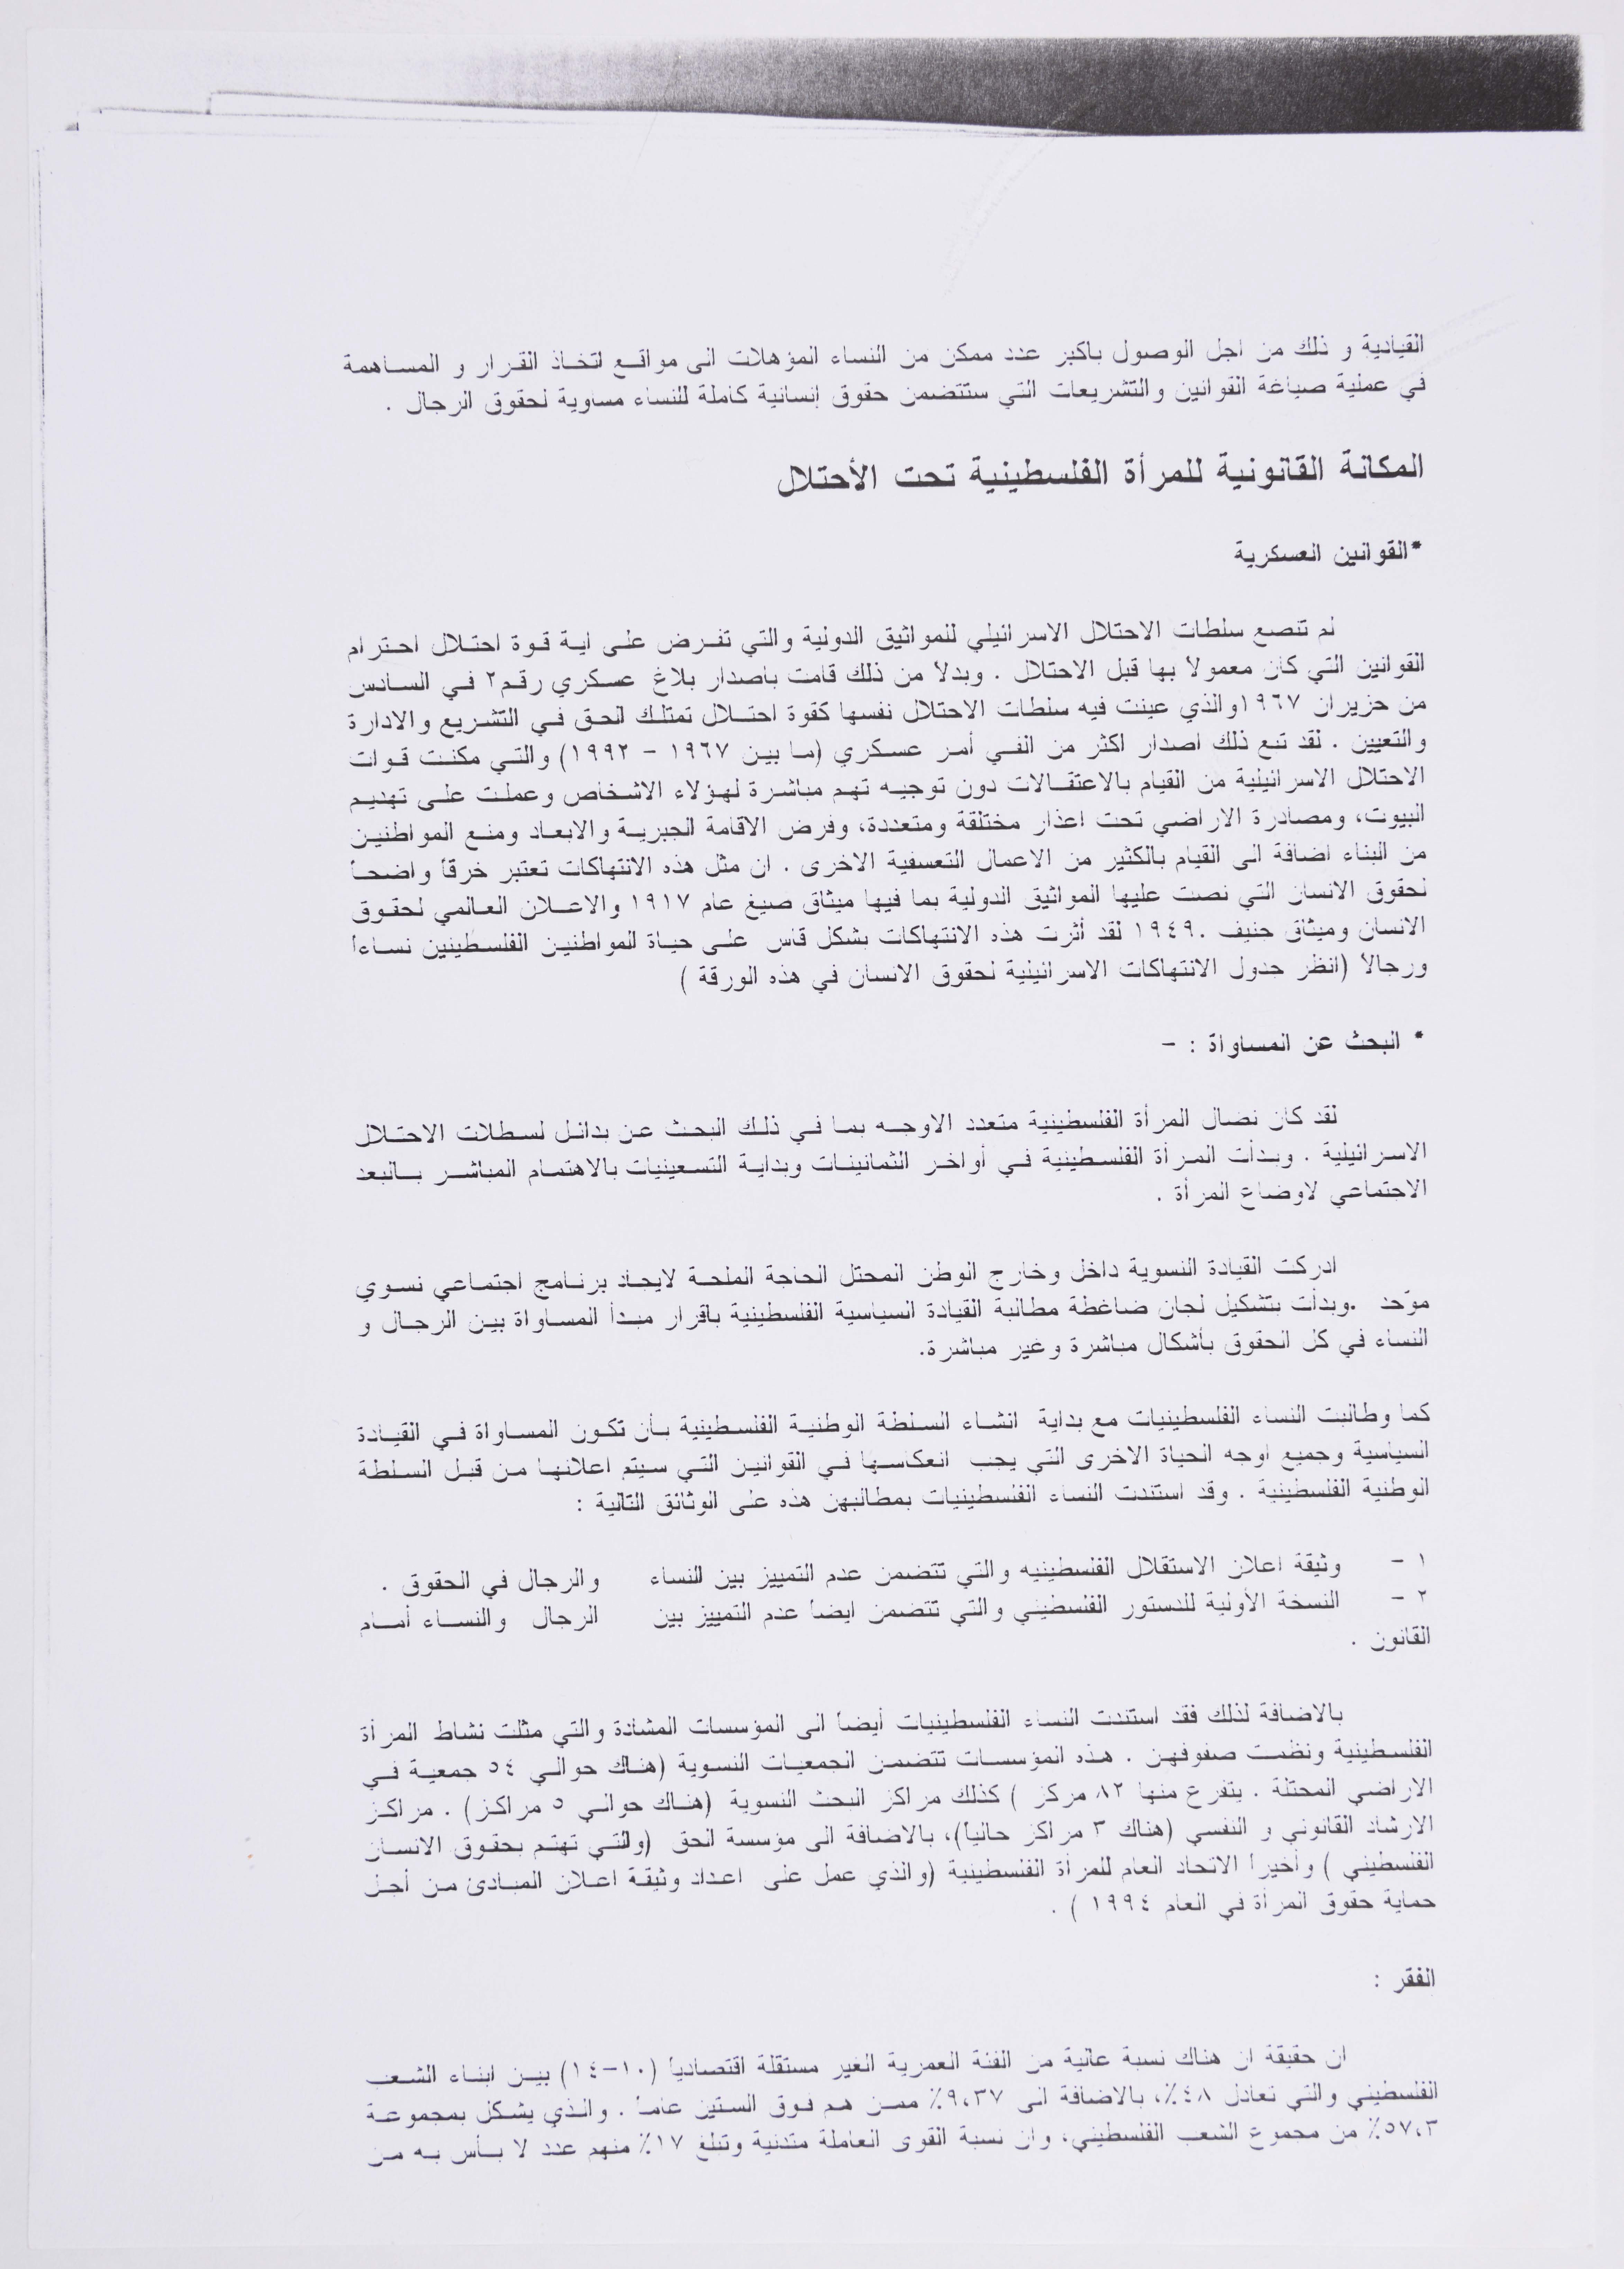 القيادية و ذلك من اجل الوصول باكبر عدد ممكن من النساء المؤهلات الى مواقع اتخاذ القرار و المساهمة
في عملية صياغة القوانين والتشريعات التي ستتضمن حقوق إنسانية كاملة للنساء مساوية لحقوق الرجال .
المكانة القانونية للمرأة الفلسطينية تحت الأحتلال
*القوانين العسكرية
لم تنصع سلطات الاحتلال الاسرائيلي للمواثيق الدولية والتي تفرض على اية قوة احتلال احترام
القوانين التي كان معمولاً بها قبل الاحتلال . وبدلاً من ذلك قامت باصدار بلاغ عسكري رقم٢ في السادس
من حزيران ١٩٦٧والذي عينت فيه سلطات الاحتلال نفسها كقوة احتلال تمتلك الحق في التشريع والادارة
والتعيين . لقد تبع ذلك اصدار اكثر من الفي أمر عسكري (ما بين ١٩٦٧ - ١٩٩٢) والتي مكنت قوات
الاحتلال الاسرائيلية من القيام بالاعتقالات دون توجيه تهم مباشرة لهؤلاء الاشخاص وعملت على تهديم
البيوت، ومصادرة الاراضي تحت اعذار مختلقة ومتعددة، وفرض الاقامة الجبرية والابعاد ومنع المواطنين
من البناء اضافة الى القيام بالكثير من الاعمال التعسفية الاخرى . ان مثل هذه الانتهاكات تعتبر خرقاً واضحاً
لحقوق الانسان التي نصت عليها المواثيق الدولية بما فيها ميثاق صيغ عام ١٩١٧ والاعلان العالمي لحقوق
الانسان وميثاق جنيف .١٩٤٩ لقد أثرت هذه الانتهاكات بشكل قاس على حياة المواطنين الفلسطينين نساءا
ورجالاً (انظر جدول الانتهاكات الاسرائيلية لحقوق الانسان في هذه الورقة )
* البحث عن المساواة : -
لقد كان نضال المرأة الفلسطينية متعدد الاوجه بما في ذلك البحث عن بدائل لسطلات الاحتلال
الاسرائيلية . وبدأت المرأة الفلسطينية في أواخر الثمانينات وبداية التسعينيات بالاهتمام المباشر بالبعد
الاجتماعي لاوضاع المرأة .
ادركت القيادة النسوية داخل وخارج الوطن المحتل الحاجة الملحة لايجاد برنامج اجتماعي نسوي
موّحد .وبدأت بتشكيل لجان ضاغطة مطالبة القيادة السياسية الفلسطينية باقرار مبدأ المساواة بين الرجال و
النساء في كل الحقوق بأشكال مباشرة وغير مباشرة.
كما وطالبت النساء الفلسطينيات مع بداية انشاء السلطة الوطنية الفلسطينية بأن تكون المساواة في القيادة
السياسية وجميع اوجه الحياة الاخرى التي يجب انعكاسها في القوانين التي سيتم اعلانها من قبل السلطة
الوطنية الفلسطينية . وقد استندت النساء الفلسطينيات بمطالبهن هذه على الوثائق التالية :
١ - وثيقة اعلان الاستقلال الفلسطينيه والتي تتضمن عدم التمييز بين النساء والرجال في الحقوق .
٢ - النسخة الأولية للدستور الفلسطيني والتي تتضمن ايضاً عدم التمييز بين الرجال والنساء أمام
القانون .
بالاضافة لذلك فقد استندت النساء الفلسطينيات أيضاً الى المؤسسات المشادة والتي مثلت نشاط المرأة
الفلسطينية ونظمت صفوفهن . هذه المؤسسات تتضمن الجمعيات النسوية (هناك حوالي ٥٤ جمعية في
الاراضي المحتلة . يتفرع منها ٨٢ مركز ) كذلك مراكز البحث النسوية (هناك حوالي ٥ مراكز) . مراكز
الارشاد القانوني و النفسي (هناك ٣ مراكز حالياً)، بالاضافة الى مؤسسة الحق (والتي تهتم بحقوق الانسان
الفلسطيني ) وأخيراً الاتحاد العام للمرأة الفلسطينية (والذي عمل على اعداد وثيقة اعلان المبادئ من أجل
حماية حقوق المرأة في العام ١٩٩٤ ) .
الفقر :
ان حقيقة ان هناك نسبة عالية من الفئة العمرية الغير مستقلة اقتصادياً (١٠-١٤) بين ابناء الشعب
الفلسطيني والتي تعادل ٤٨٪، بالاضافة الى ٩،٣٧٪ ممن هم فوق الستين عاماً . والذي يشكل بمجموعة
٥٧،٣٪ من مجموع الشعب الفلسطيني، وان نسبة القوى العاملة متدنية وتبلغ ١٧٪ منهم عدد لا بأس به من